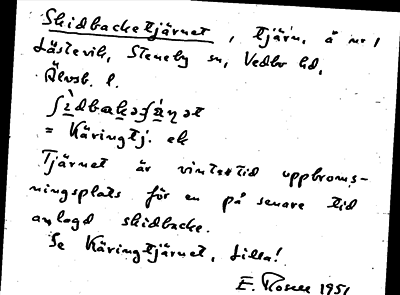 Skidbacketjärnet, tjärn, å nr 1
Låstevik, Steneby sn, Vedbo hd,
Älvsb. l.
= Käringtj. ek
Tjärnet är vintertid uppbroms-
ningsplats för en på senare tid
anlagd skidbacke.
Se Käringtjärnet, Lilla!
E. 1951